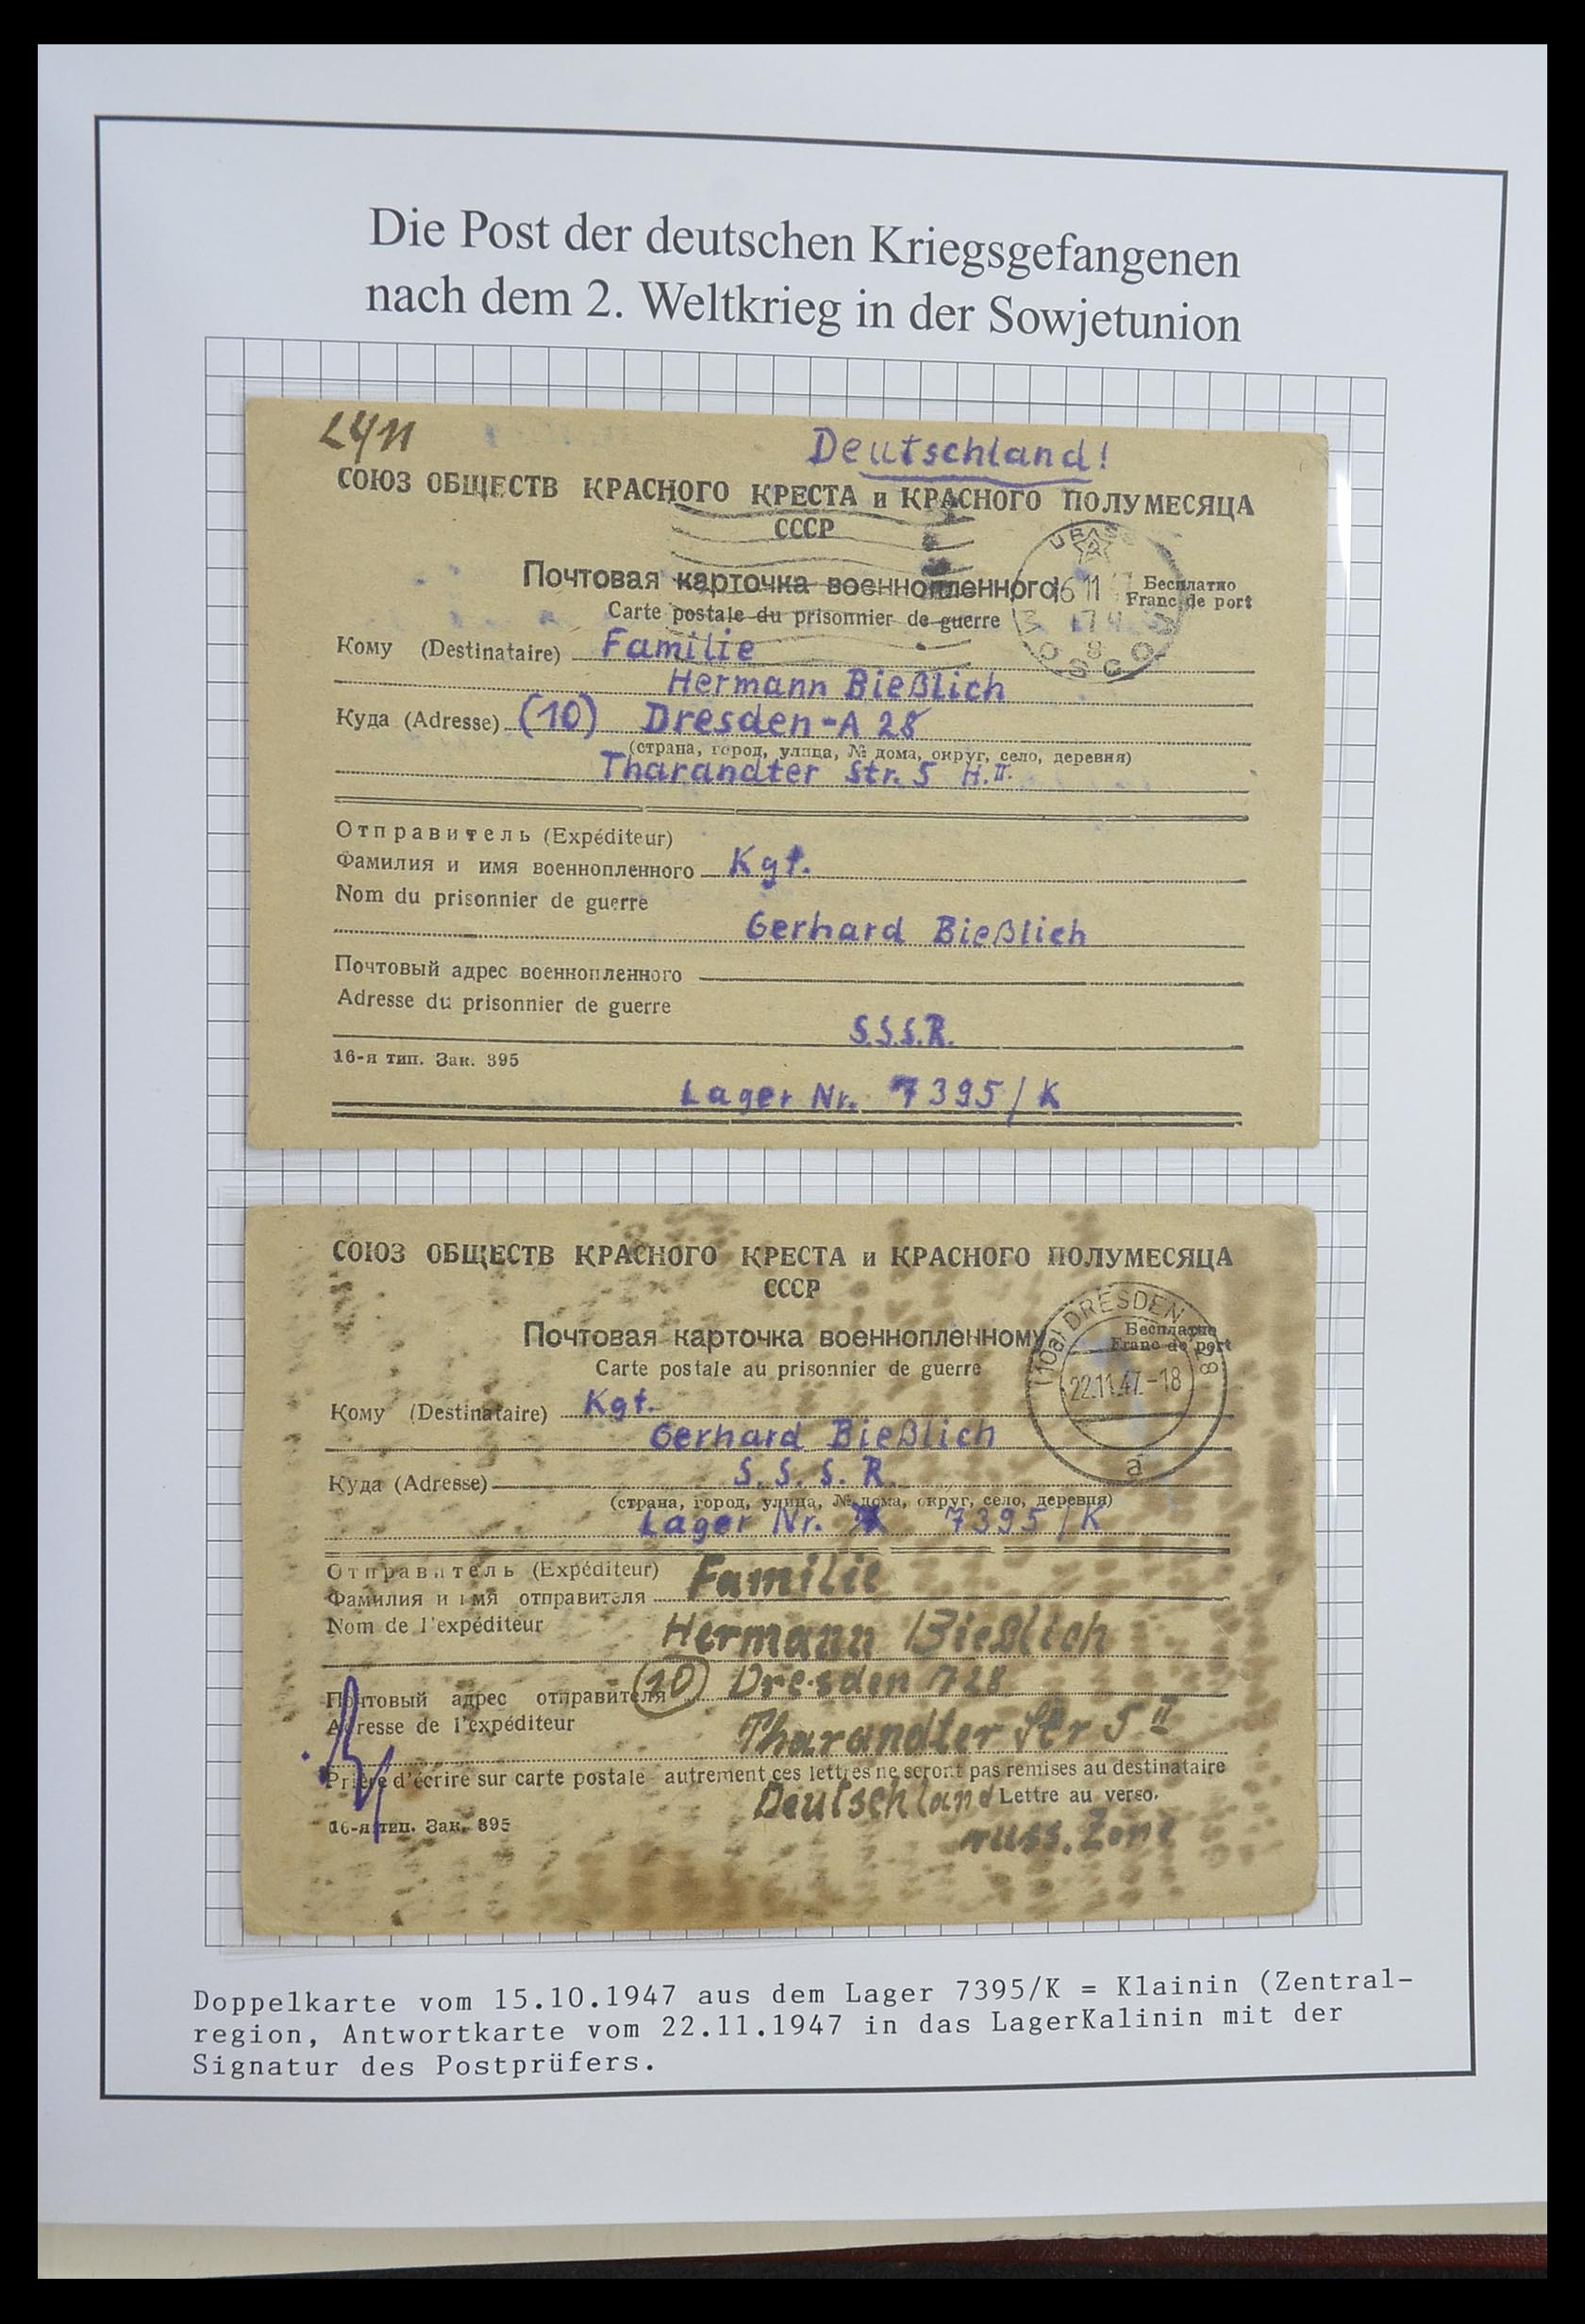 Die Post der deutschen Kriegsgefangenen
nach dem 2. Weltkrieg in der Sowjetunion
Deutschland!
СОЮЗ ОБЩЕСТВ КРАСНОГО КРЕСТА и КРАСНОГО ПОЛУМЕСЯЦА
СССР
Почтовая карточка военнопленного
Бесплатно
Carte postale du prisonnier de guerre
Franc de port
16 11
Кому (Destinataire) Familie
Hermann Bießlich
Куда (Adresse) (10) Dresden-A 28
(страна, город, улица, № дома, округ, село, деревня)
Tharandter Str. 5 H.II.
Отправитель (Expéditeur)
Фамилия и имя военнопленного Kgf.
Nom du prisonnier de guerre
Gerhard Bießlich
Почтовый адрес военнопленного
Adresse du prisonnier de guerre
S.S.S.R.
16-я тип. Зак. 395
Lager Nr. 7395/K
СОЮЗ ОБЩЕСТВ КРАСНОГО КРЕСТА и КРАСНОГО ПОЛУМЕСЯЦА
СССР
Почтовая карточка военнопленному
Бесплатно
Carte postale au prisonnier de guerre
Franc de port
(10a) DRESDEN A 28
22.11.47.-18
a
Кому (Destinataire) Kgf.
Gerhard Bießlich
Куда (Adresse) S. S. S. R.
(страна, город, улица, № дома, округ, село, деревня)
Lager Nr. 7395/K
Отправитель (Expéditeur)
Фамилия и имя отправителя Familie
Nom de l'expéditeur
Hermann Bießlich
Почтовый адрес отправителя (10) Dresden 728
Adresse de l'expéditeur
Tharandter Str 5 II
Prière d'écrire sur carte postale autrement ces lettres ne seront pas remises au destinataire
Deutschland Lettre au verso.
16-я тип. Зак. 395
russ. Zone
Doppelkarte vom 15.10.1947 aus dem Lager 7395/K = Klainin (Zentral-
region, Antwortkarte vom 22.11.1947 in das LagerKalinin mit der
Signatur des Postprüfers.